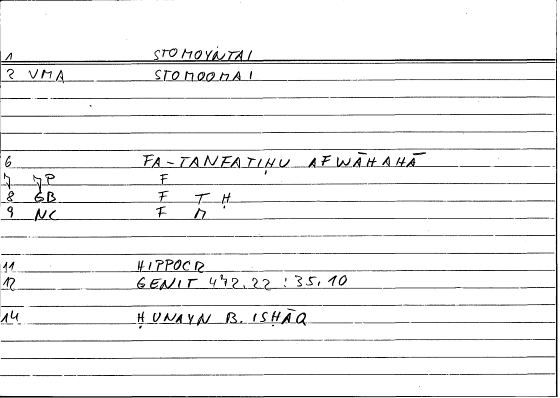 1 STOMOYNTAI
2 VMA STOMOOMAI
6 FA-TANFATIḤU AFWĀHAHĀ
7 JP F
8 GB F T Ḥ
9 NC F M
11 HIPPOCR
12 GENIT 472.22 : 35.10
14 ḤUNAYN B. ISḤĀQ